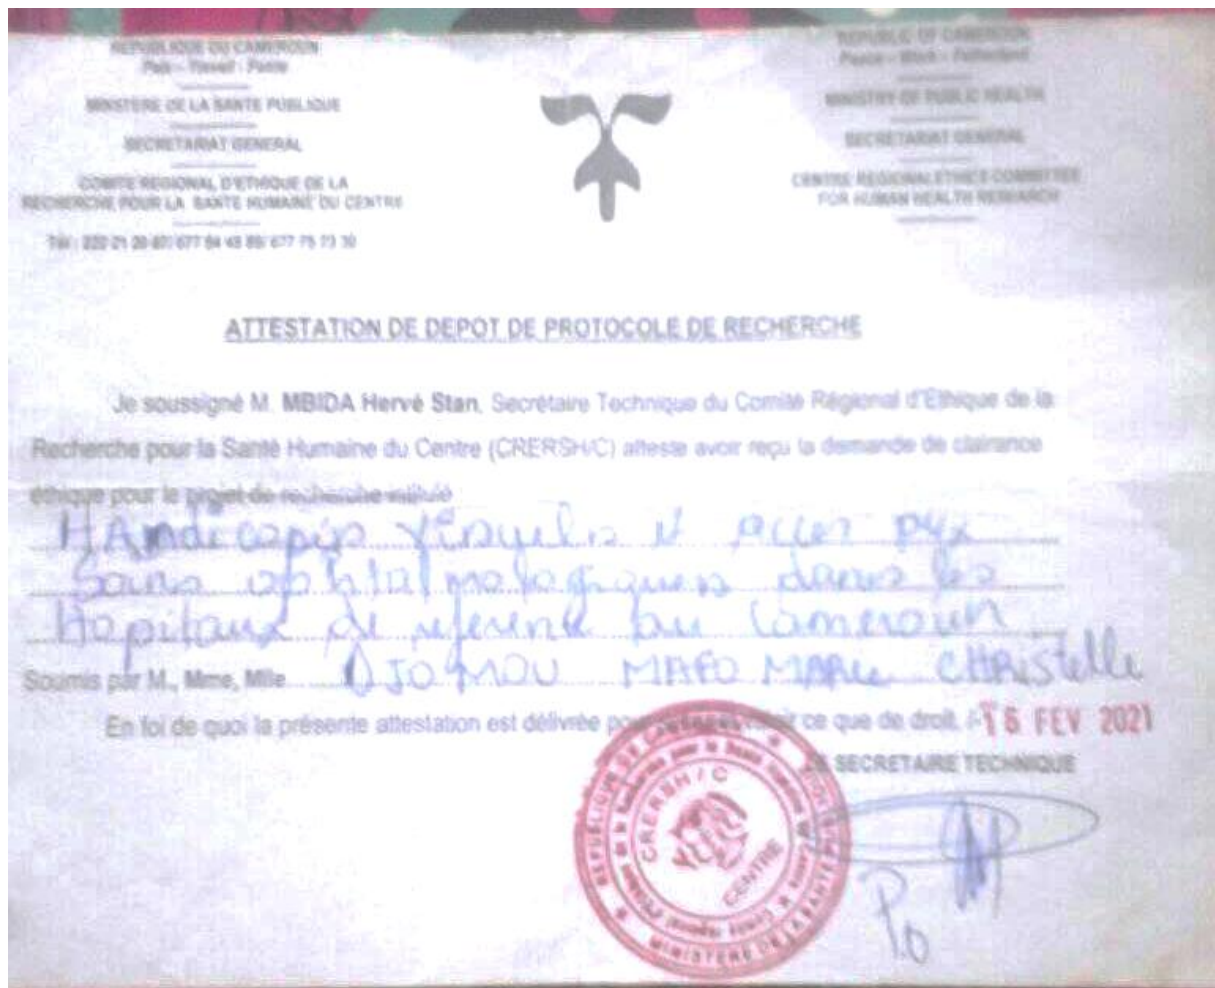 REPUBLIQUE DU CAMEROUN
Paix - Travail - Patrie
MINISTERE DE LA SANTE PUBLIQUE
SECRETARIAT GENERAL
COMITE REGIONAL D'ETHIQUE DE LA
RECHERCHE POUR LA SANTE HUMAINE DU CENTRE
REPUBLIC OF CAMEROON
Peace - Work - Fatherland
MINISTRY OF PUBLIC HEALTH
SECRETARIAT GENERAL
CENTRE REGIONAL ETHICS COMMITTEE
FOR HUMAN HEALTH RESEARCH
ATTESTATION DE DEPOT DE PROTOCOLE DE RECHERCHE
Je soussigné M. MBIDA Hervé Stan, Secrétaire Technique du Comité Régional d'Ethique de la
Recherche pour la Santé Humaine du Centre (CRERSH/C) atteste avoir reçu la demande de clairance
éthique pour le projet de recherche intitulé
Handicapés visuels et accès aux
Soins ophtalmologiques dans les
Hopitaux de référence au Cameroun
Soumis par M., Mme, Mlle DJOMOU MAFO MARIE CHRISTELLE
En foi de quoi la présente attestation est délivrée pour ce que de droit.
16 FEV 2021
SECRETAIRE TECHNIQUE
CRERSH/C
CENTRE
P.o